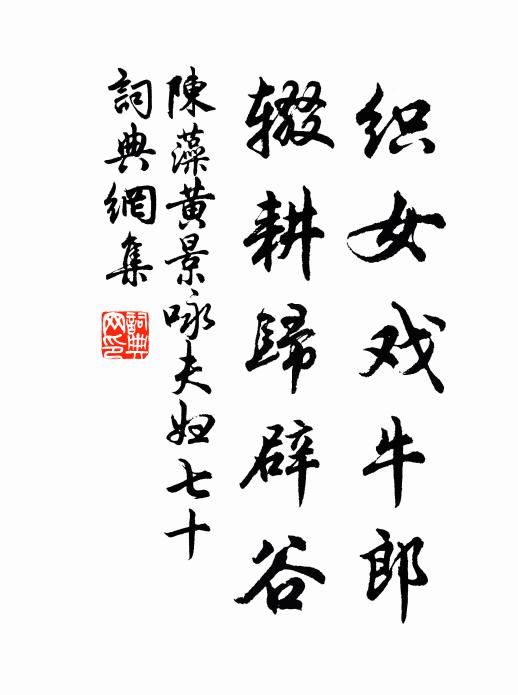 织女戏牛郎
辍耕歸辟谷
陳藻黄景咏夫妇七十
詞典網集
詞典网印